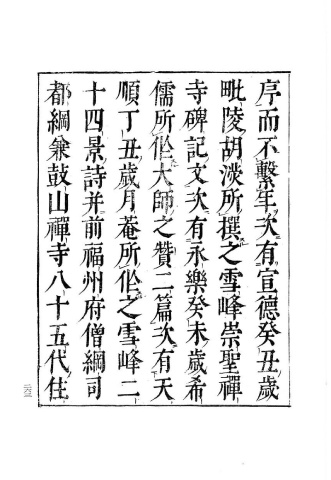 序而不繫年次有宣德癸丑歲
毗陵胡濙所撰之雪峰崇聖禪
寺碑記文次有永樂癸未歲希
儒所作大師之贊二篇次有天
順丁丑歲月菴所作之雪峰二
十四景詩并前福州府僧綱司
都綱兼鼓山禪寺八十五代住